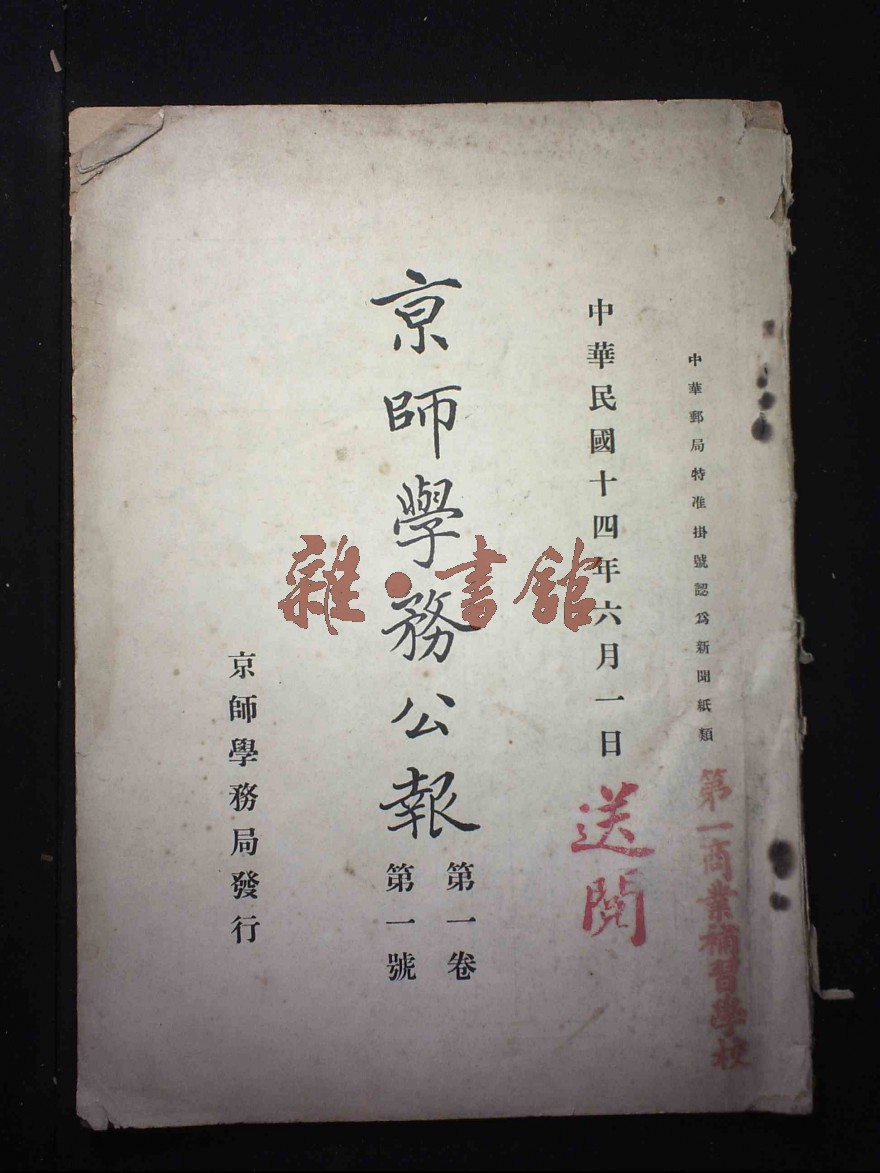 中華郵局特准掛號認爲新聞紙類
第一商業補習學校
中華民國十四年六月一日
送閱
京師學務公報
第一卷
第一號
京師學務局發行
雜·書館